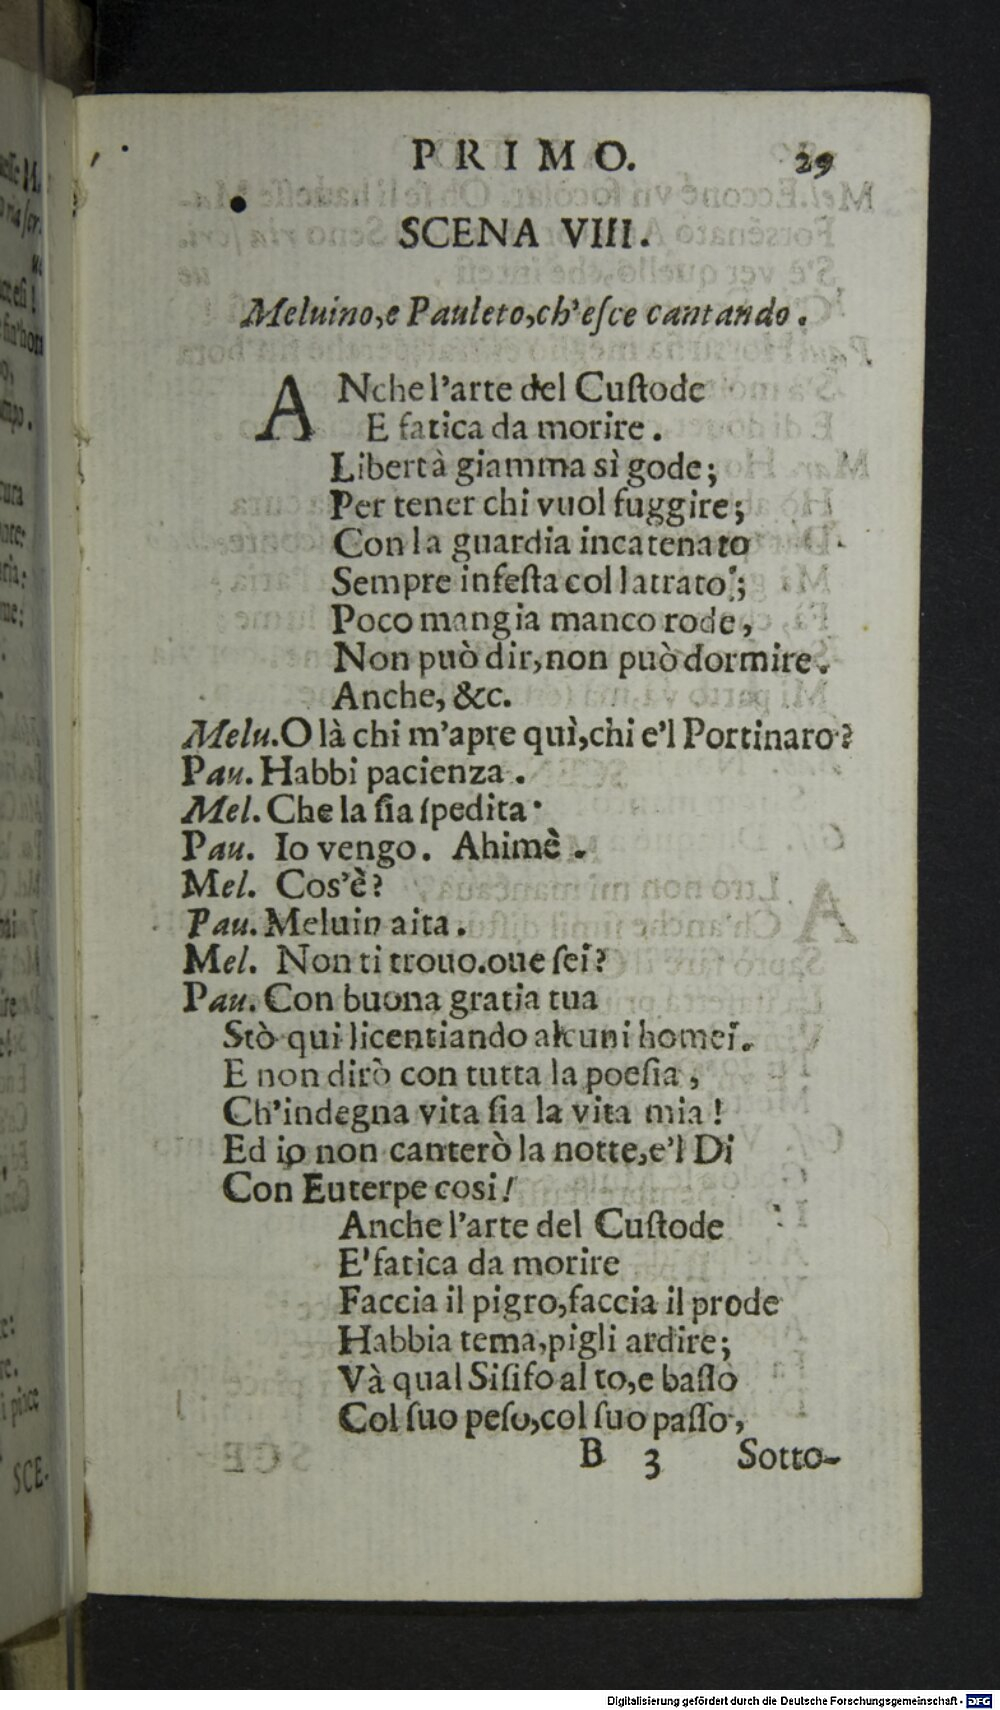 PRIMO. 29
SCENA VIII.
Meluino,e Pauleto,ch'eſce cantando.
ANche l'arte del Cuſtode
E fatica da morire.
Libertà giamma sì gode;
Per tener chi vuol fuggire;
Con la guardia incatenato
Sempre infeſta col latrato;
Poco mangia manco rode,
Non può dir,non può dormire.
Anche, &c.
Melu.O là chi m'apre quì,chi e'l Portinaro?
Pau. Habbi pacienza.
Mel. Che la ſia ſpedita.
Pau. Io vengo. Ahimè.
Mel. Cos'è?
Pau. Meluin aita.
Mel. Non ti trouo.oue ſei?
Pau. Con buona gratia tua
Stò qui licentiando alcuni homei.
E non dirò con tutta la poeſia,
Ch'indegna vita ſia la vita mia!
Ed io non canterò la notte,e'l Di
Con Euterpe cosi!
Anche l'arte del Cuſtode
E' fatica da morire
Faccia il pigro,faccia il prode
Habbia tema,pigli ardire;
Và qual Siſifo al to,e baſſo
Col ſuo peſo,col ſuo paſſo,
B 3 Sotto-
SCE-
Digitalisierung gefördert durch die Deutsche Forschungsgemeinschaft - DFG